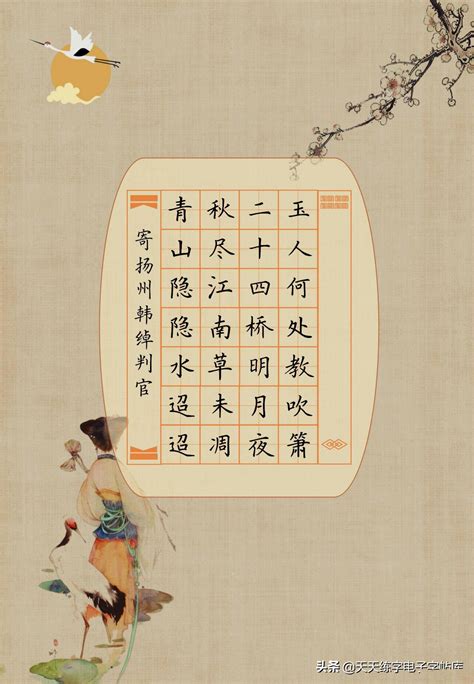 寄扬州韩绰判官
青山隐隐水迢迢
秋尽江南草未凋
二十四桥明月夜
玉人何处教吹箫
头条 @天天练字电子字帖库